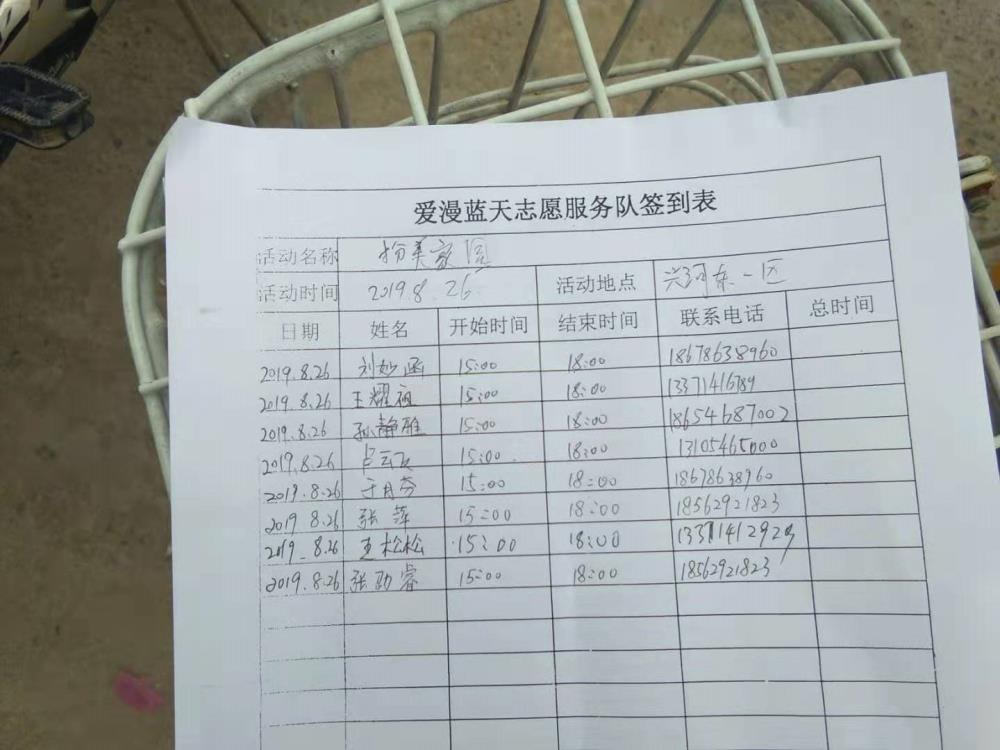 爱漫蓝天志愿服务队签到表
活动名称 扮美家园
活动时间 2019.8.26 活动地点 兴河东一区
日期 姓名 开始时间 结束时间 联系电话 总时间
2019.8.26 刘妙函 15:00 18:00 18678638960
2019.8.26 王耀 15:00 18:00 13371416789
2019.8.26 孙静雅 15:00 18:00 18654687002
2019.8.26 15:00 18:00 13105465000
2019.8.26 于月芬 15:00 18:00 18678638960
2019 8.26 张萍 15:00 18:00 18562921823
2019.8.26 王松松 15:00 18:00
2019.8.26 张劲睿 15:00 18:00 18562921823